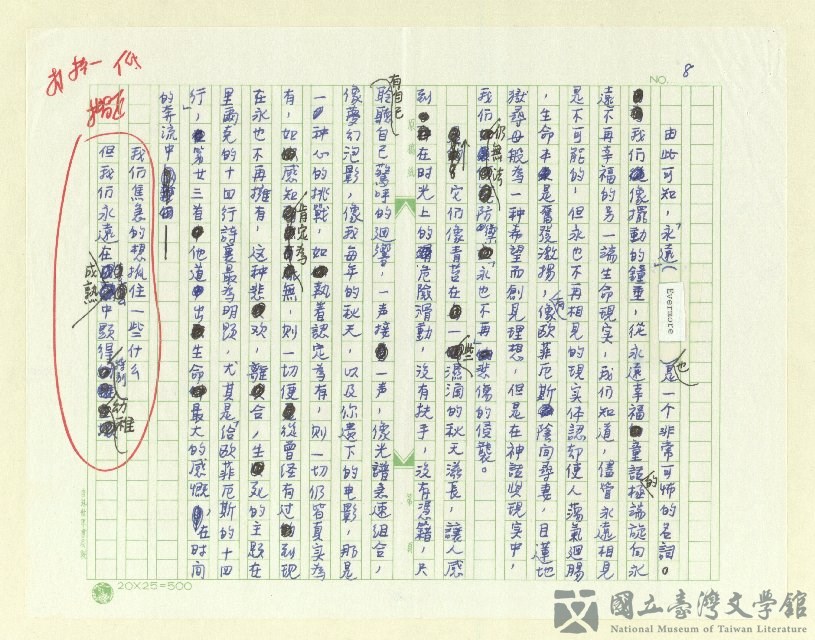 NO. 8
由此可知，「永遠」(Evermore)也是一个非常可怖的名詞。
我们像擺動的鐘垂，從永遠幸福的童話極端旋向永
遠不再幸福的另一端生命現实，我们知道，儘管永遠相見
是不可能的，但永也不再相見的現实体認却使人蕩氣迴腸
，生命本是奮發激揚，像歐菲厄斯陰间尋妻，目蓮地
獄尋母般為一种希望而創見理想，但是在神話與現实中，
我们仍無法防禦「永也不再」悲傷的侵襲。
它们像青苔在一些濕漉的秋天滋長，讓人感
到在时光上的危險滑動，沒有扶手，沒有憑籍，只有自己
聆聽自己驚呼的迴響，一声接一声，像光譜急速組合，
像夢幻泡影，像我每年的秋天，以及你遺下的电影，那是
一种心的挑戰，如執着認定為有，則一切仍眞实為
有，如感知肯定為無，則一切便從曾经有过到現
在永也不再擁有，这种悲欢，離合，生死的主題在
里爾克的十四行詩裏最為明顯，尤其是「給歐菲厄斯的十四
行」，第廿三首他道出生命中最大的感慨，在时间
的奔流中——
我们焦急的想抓住一些什么
但我们永遠在成熟中顯得特別幼稚
20X25=500
國立臺灣文學館
National Museum of Taiwan Literature